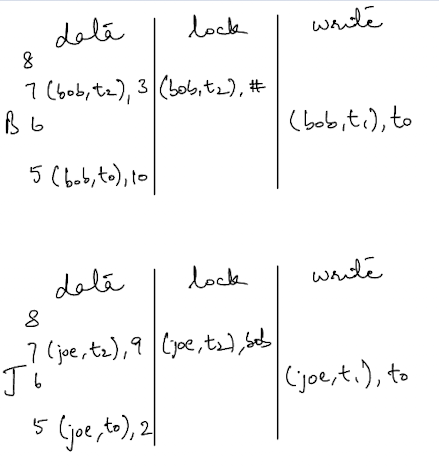 data lock write
8
7 (bob,t2), 3 (bob,t2), #
B 6 (bob,t1), t0
5 (bob,t0), 10
data lock write
8
7 (joe,t2), 9 (joe,t2), bob
J 6 (joe,t1), t0
5 (joe,t0), 2